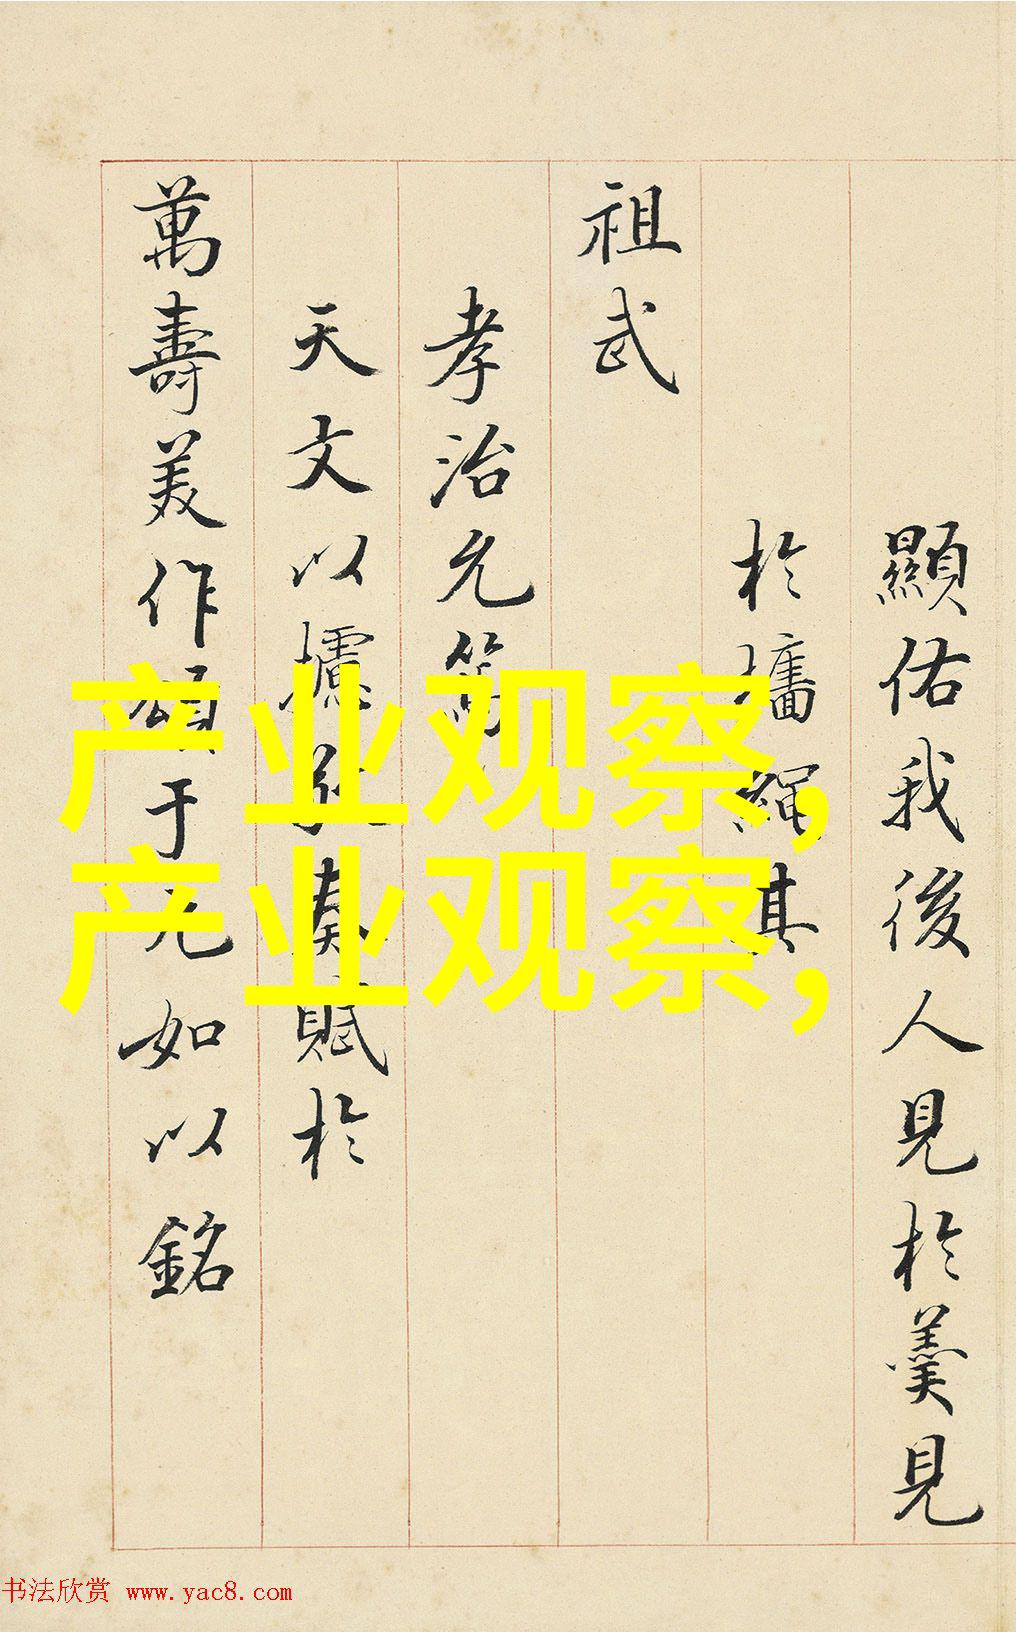 顯佑我後人見於羹見
於墻繩其
祖武
孝治允篤
天文以攄奏賦於
萬壽美作頌于九如以銘
产业观察,
产业观察,
书法欣赏 www.yac8.com